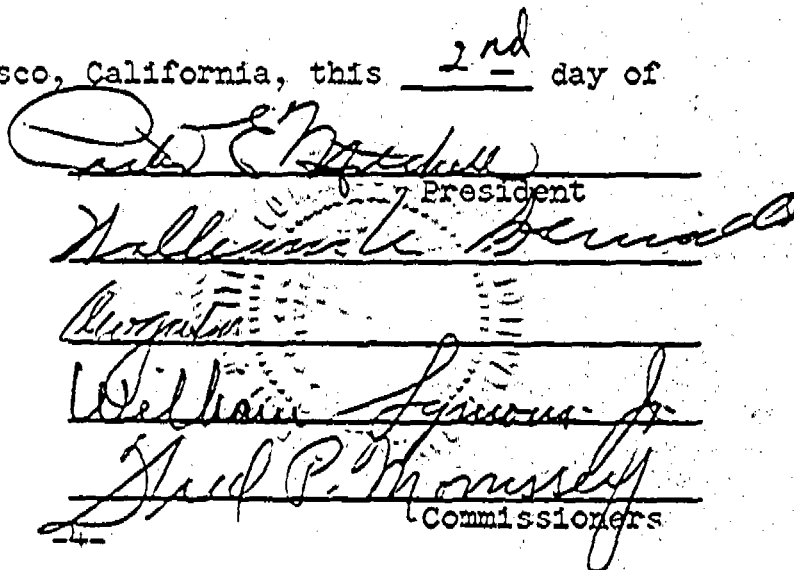 sco, California, this 2nd day of
Peter E Mitchell
President
William M. Bennett
Augustin
William Symons Jr.
Fred P. Morrissey
Commissioners
-4-